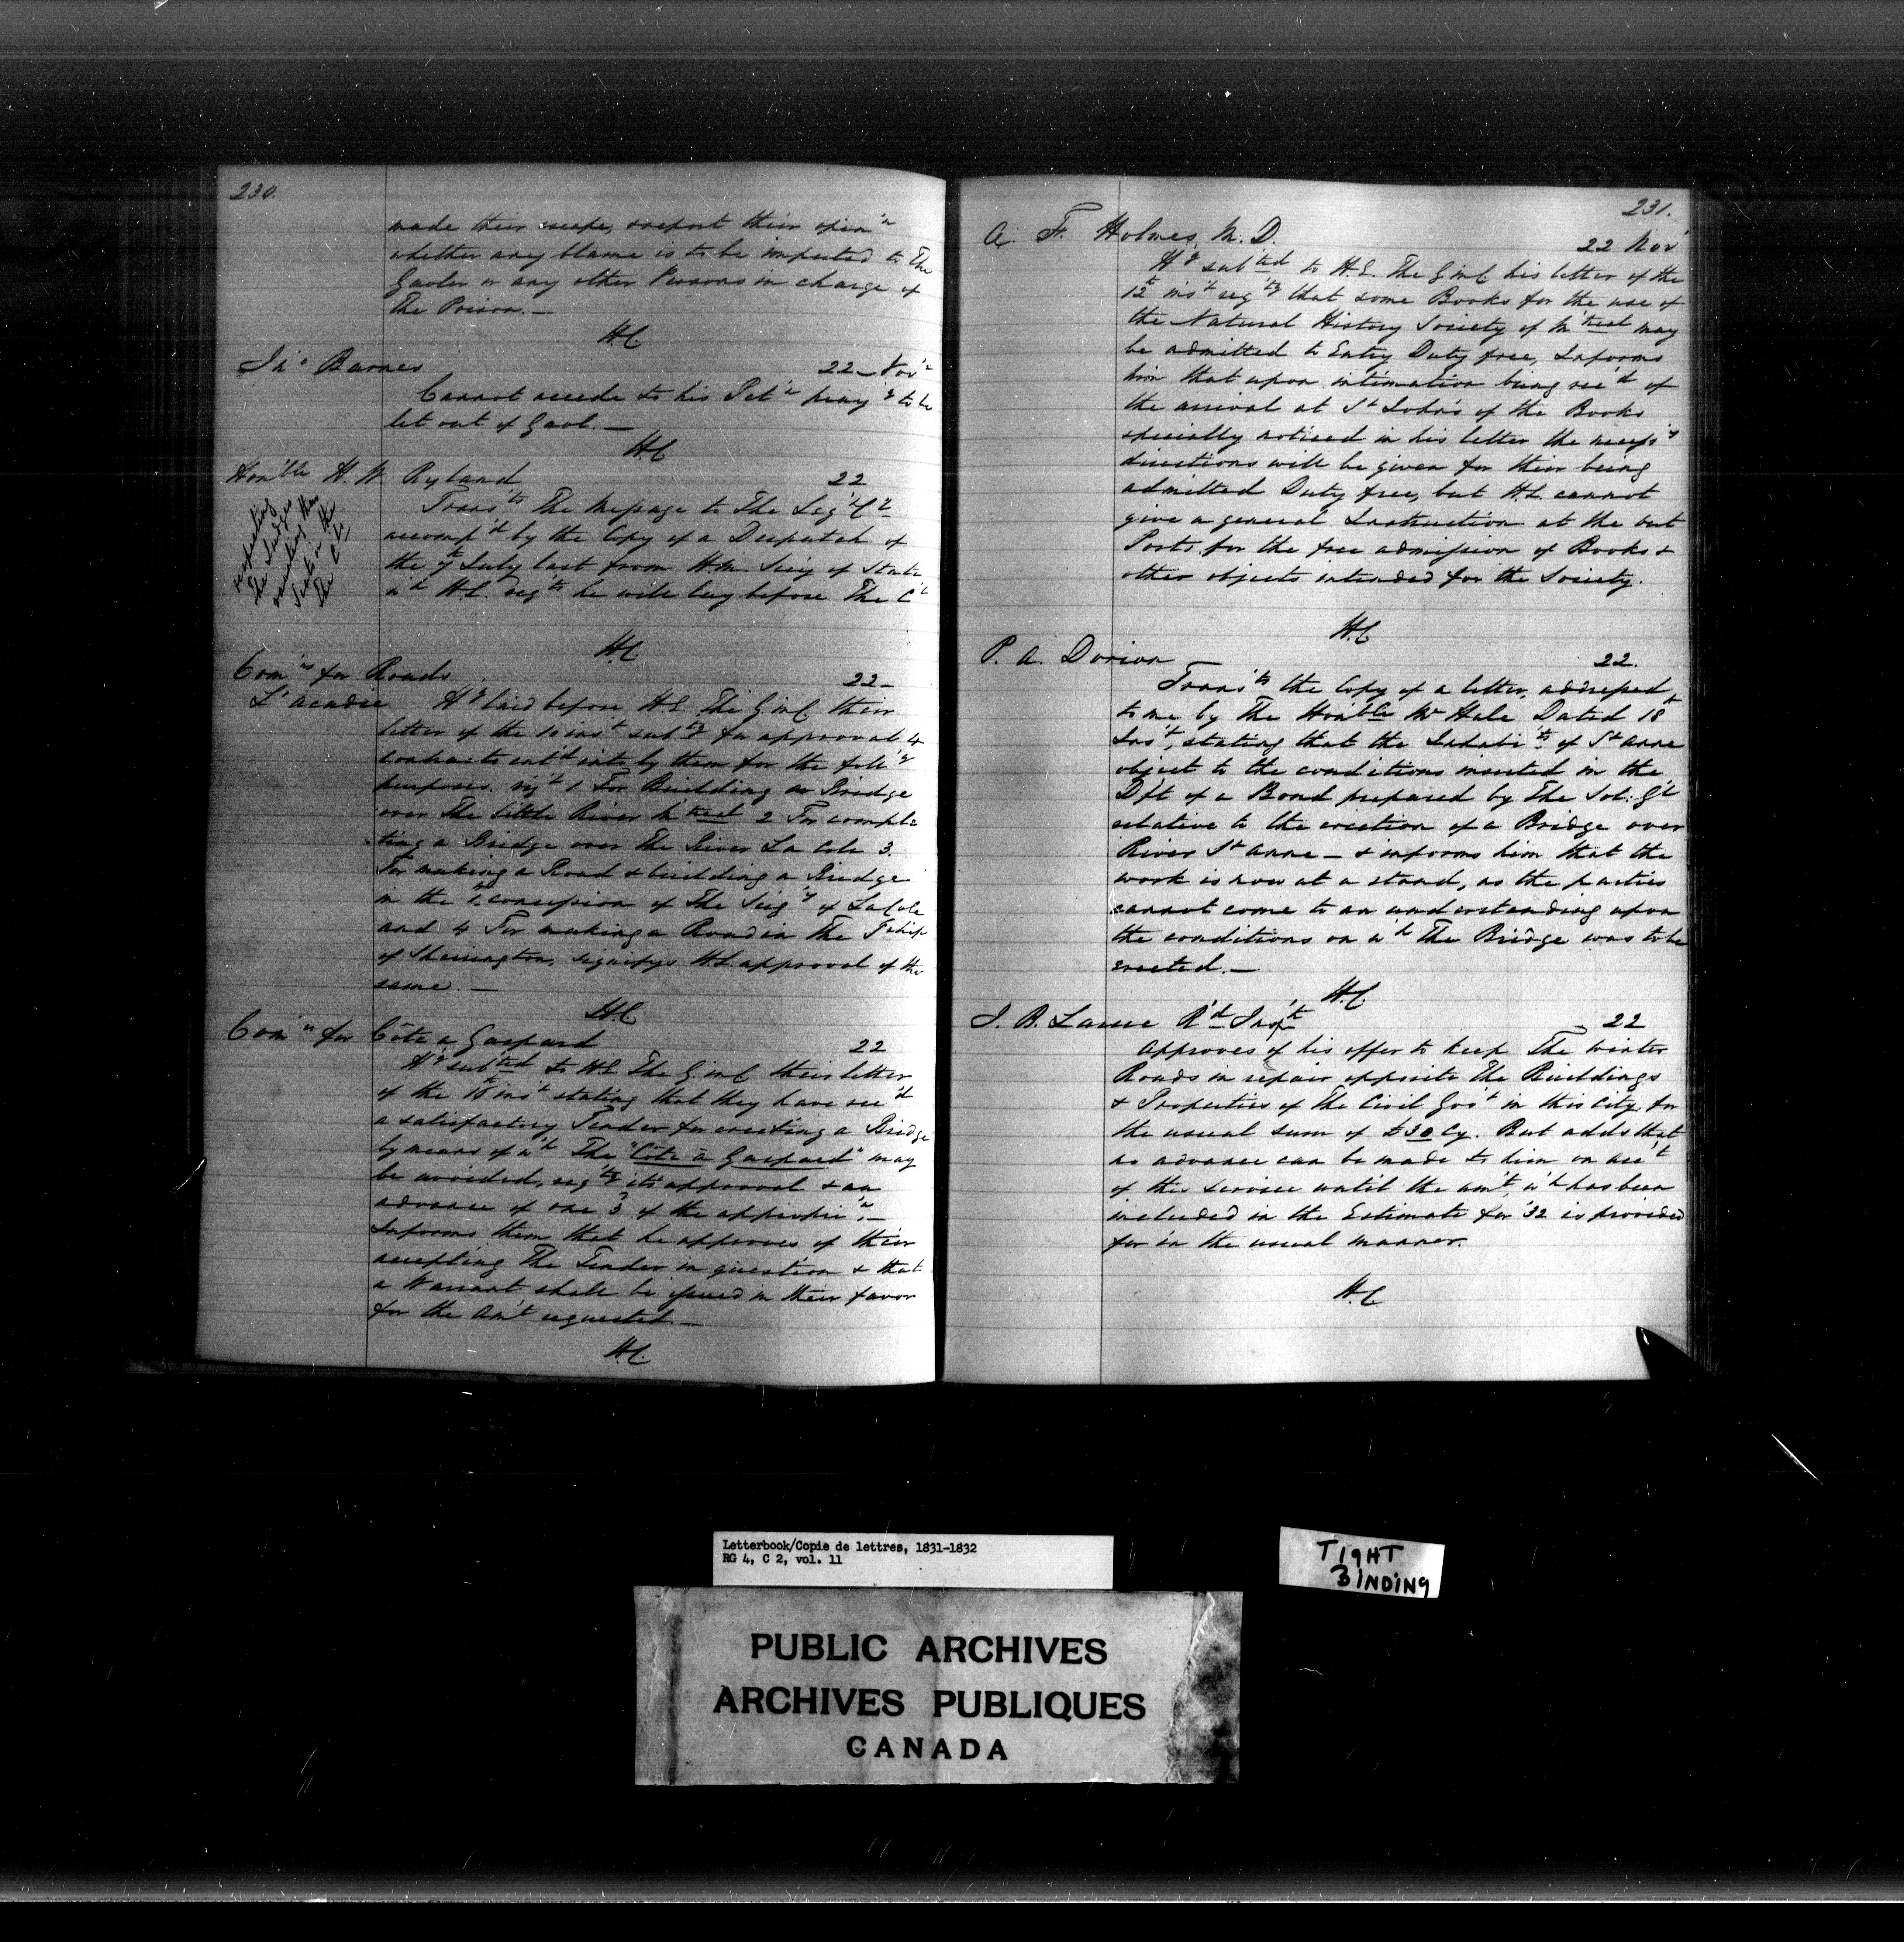 230.
made their escape, & report their opin'n
whether any blame is to be imputed to The
Gaoler or any other Persons in charge of
The Prison. —
H.C.
Jn° Barnes 22 Nov'r
Cannot accede to his Pet'n pray'g to be
let out of Gaol. —
H.C.
Hon'ble H. W. Ryland 22
Trans'ts The Message to The Leg'C'l
accomp'd by the Copy of a Despatch of
the 7th July last from H.M. Secy of State
w'h H.E. reg'ts he will lay before The C'l
respecting
The Judges
vacating their
Seats in the
The C'l
H.C.
Com'rs for Roads 22 —
L'acadie H'g laid before H.E. The G. in C. their
letter of the 10 ins't sub'g for approval 4
contracts ent'd into by them for the foll'g
purposes. viz't 1 For Building a Bridge
over The little River M'treal 2 For comple
ting a Bridge over The River La Cole 3.
For making a Road & building a Bridge
in the concession of The Seig'y of LaCole
and 4 For making a Road in The T'ship
of Sherrington, signifys H.E. approval of the
same. —
H.C.
Com'rs for Côte a Gaspard 22
H'g sub'ted to H.E. The G. in C. their letter
of the 18 ins't stating that they have rec'd
a satisfactory Tender for erecting a Bridge
by means of w'h The "Côte à Gaspard" may
be avoided, reg'tg its approval & an
advance of one 3 of the appropri'n, —
Informs them that he approves of their
accepting The Tender in question & that
a Warrant shall be issued in their favor
for the Am't requested. —
H.C.
231.
A. F. Holmes, M.D. 22 Nov'
H'g sub'ted to H.E. The G. in C. his letter of the
12th ins't reg'tg that some Books for the use of
the Natural History Society of M'treal may
be admitted to Entry Duty free, Informs
him that upon intimation being rec'd of
the arrival at St John's of the Books
specially noticed in his letter the necess'y
directions will be given for their being
admitted Duty free, but H.E. cannot
give a general Instruction at the out
Ports for the free admission of Books &
other objects intended for the Society.
H.C.
P. A. Dorion 22.
Trans'ts the Copy of a letter, addressed
to me by The Hon'ble Mr Hale Dated 18th
Ins't, stating that the Inhabi'ts of St Anne
object to the conditions inserted in the
Dft of a Bond prepared by The Sol: G'l
relative to the erection of a Bridge over
River St Anne — & informs him that the
work is now at a stand, as the parties
cannot come to an understanding upon
the conditions on w'h The Bridge was to be
erected. —
H.C.
J. B. Larue R'd Insp't 22
Approves of his offer to keep The winter
Roads in repair opposite The Buildings
& Properties of The Civil Gov't in this City for
the usual sum of £30 Cy. But adds that
no advance can be made to him on acc't
of this service until the am't, w'h has been
included in the Estimate for '32 is provided
for in the usual manner.
H.C.
Letterbook/Copie de lettres, 1831-1832
RG 4, C 2, vol. 11
TIGHT
BINDING
PUBLIC ARCHIVES
ARCHIVES PUBLIQUES
CANADA